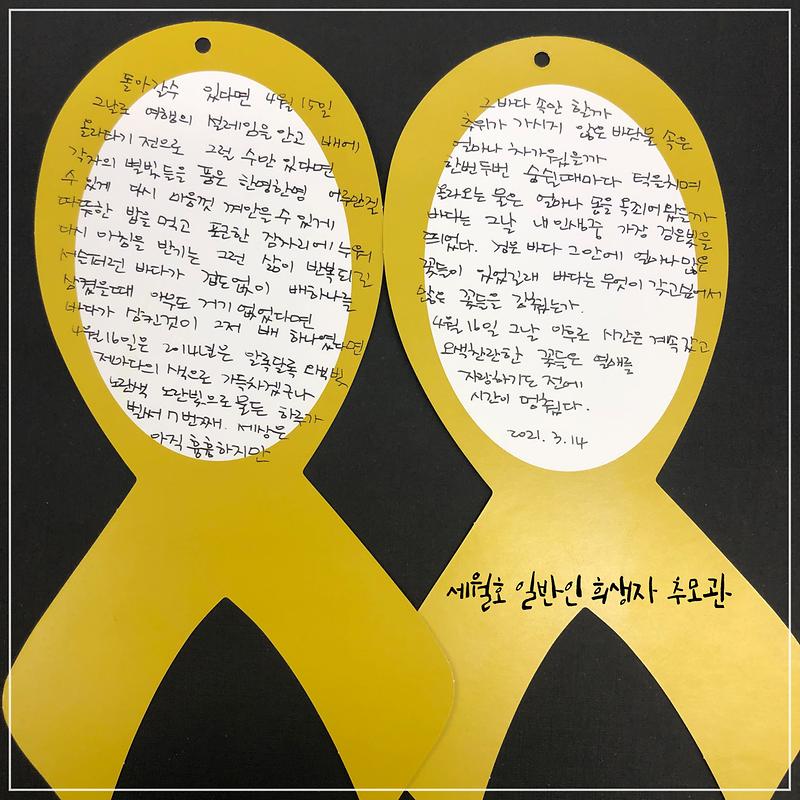 돌아갈수 있다면 4월 15일
그날로 여행의 설레임을 안고 배에
올라타기 전으로 그럴 수만 있다면
각자의 별빛들을 품은 한명한명 어루만질
수 있게 다시 마음껏 껴안을 수 있게
따뜻한 밥을 먹고 포근한 잠자리에 누워
다시 아침을 반기는 그런 삶이 반복되길
서슬퍼런 바다가 겁도없이 배하나를
삼켰을때 아무도 거기 없었다면
바다가 삼킨것이 그저 배 하나였다면
4월16일은 2014년은 알록달록
제마다의 색으로 가득차겠구나
노란색 노란빛으로 물든 하루가
벌써 7번째. 세상은
아직 흉흉하지만
그바다 속안 할까
추위가 가시지 않은 바닷물 속은
얼마나 차가웠을까
한번두번 숨쉴때마다 턱을치며
올라오는 물은 얼마나 몸을 옥죄어 왔을까
바다는 그날 내인생중 가장 검은빛을
띄었다. 검은 바다 그안에 얼마나많은
꽃들이 있었길래 바다는 무엇이 갖고싶어서
많은 꽃들을 감췄는가.
4월 16일 그날 이후로 시간은 계속갔고
오색찬란한 꽃들은 열매를
자랑하기도 전에
시간이 멈췄다.
2021. 3. 14
세월호 일반인 희생자 추모관